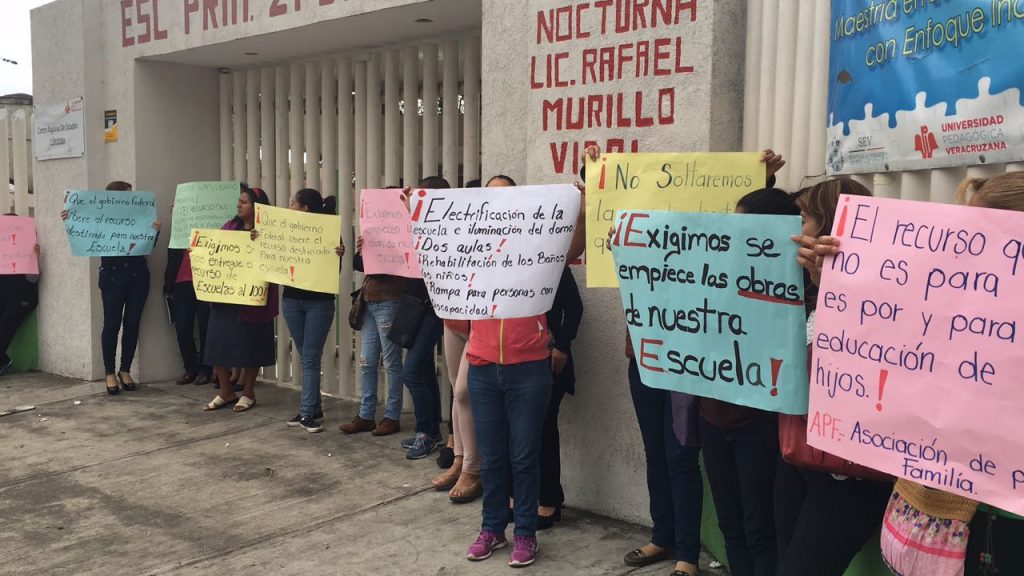 ESC PRIM.
NOCTURNA
LIC. RAFAEL
MURILLO
VIDAL
Maestría
con Enfoque
SEV
UNIVERSIDAD
PEDAGÓGICA
VERACRUZANA
Centro Regional de Estudios
CÓRDOBA
¡Que el gobierno federal
libere el recurso
destinado para nuestra
Escuela!
¡Exigimos se nos
entregue el
recurso de
Escuelas al 100!
¡Que el gobierno
Federal libere el
recurso destinado
Para nuestra
escuela!
¡Exigimos
comiencen
de nuestra
¡Electrificación de la
escuela e iluminación del domo
¡Dos aulas!
¡Rehabilitación de los Baños
los niños!
¡Rampa para personas con
discapacidad!
¡No Soltaremos
¡Exigimos se
empiece las obras
de nuestra
Escuela!
¡El recurso
no es para
es por y para
educación de
hijos.!
APF- Asociación de
Familia.